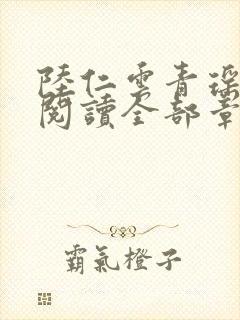 陸仁雲青瑤
閱讀全部章
霸氣橙子